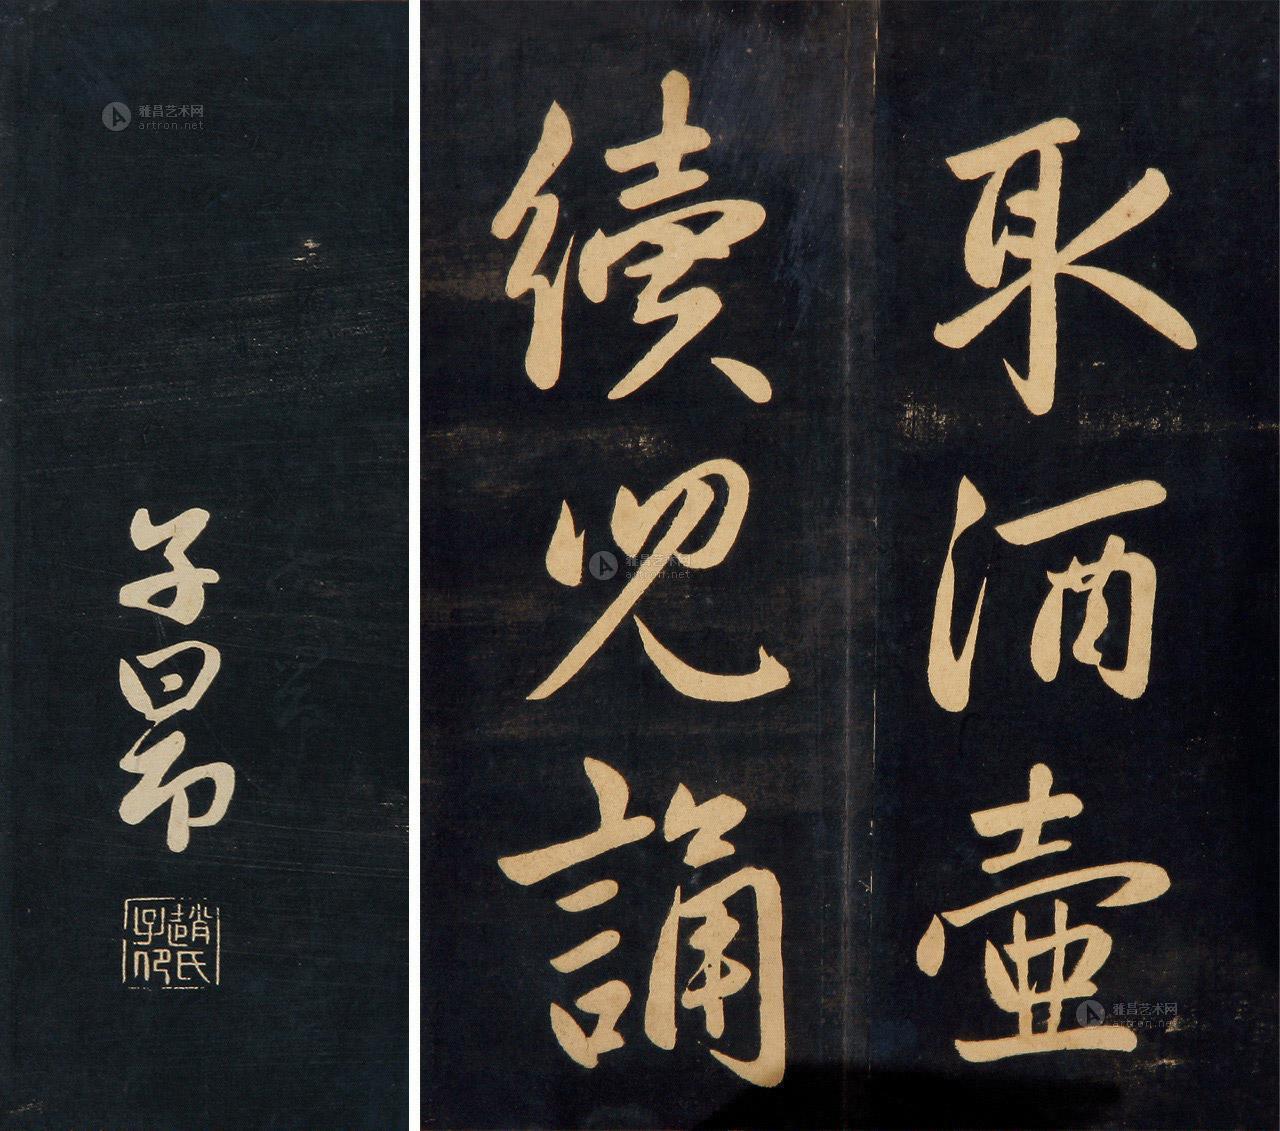 取酒壺
續兕誦
子昂
趙氏子印
雅昌艺术网
artron.net
雅昌艺术网
artron.net
雅昌艺术网
artron.net